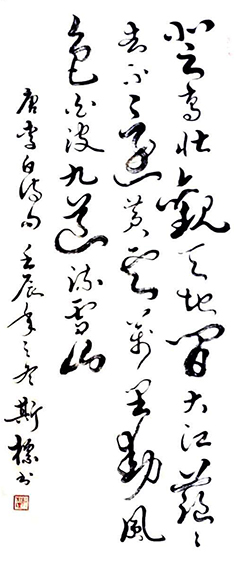 登高壮觀天地間大江茫々
去不還黄雲萬里動風
色白波九道流雪山
唐李白詩句壬辰年之冬斯標书